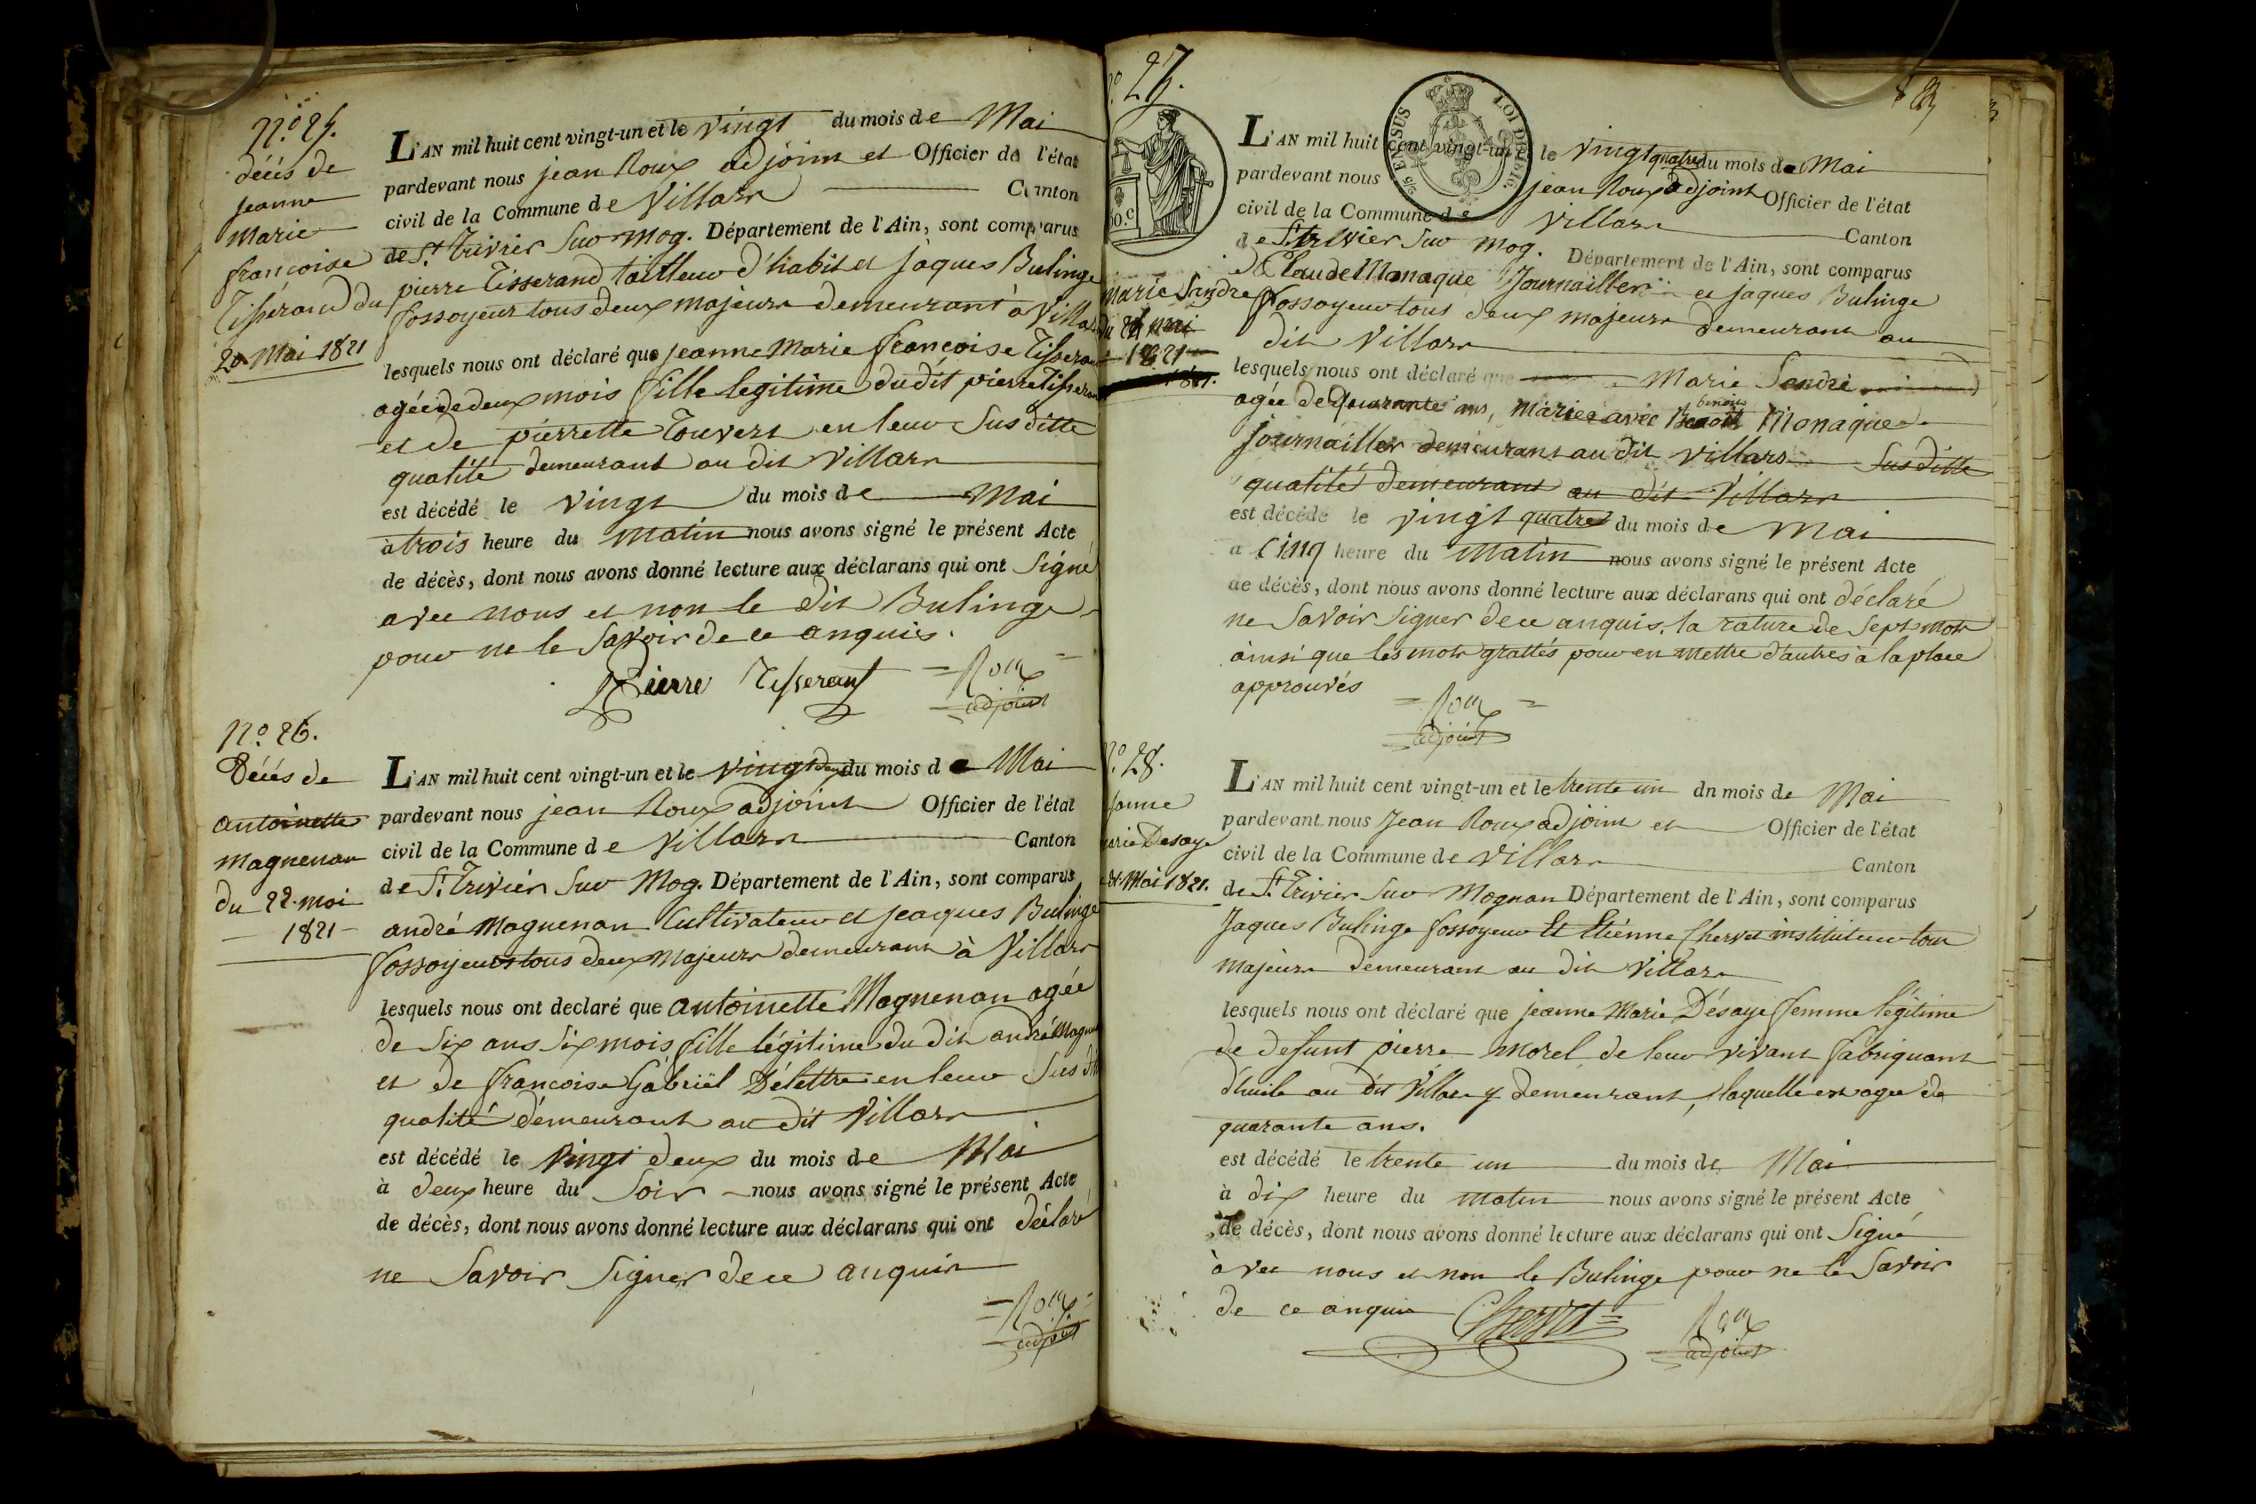 N.º 25.
décés de
jeanne
Marie
francoise
Tisserand du
20 Mai 1821
L'AN mil huit cent vingt-un et le vingt du mois de Mai
pardevant nous jean Roux adjoint et Officier de l'état
civil de la Commune de Villars Canton
de St. Trivier Sur Mog. Département de l'Ain, sont comparus
pierre Tisserand tailleur d'habit et jaques Bulinge
fossoyeur tous deux majeurs demeurant à Villars
lesquels nous ont déclaré que jeanne Marie francoise Tisserand
agée de deux mois fille legitime du dit pierre Tisserand
et de pierrette Touvert en leur Sus ditte
qualité demeurant au dit Villars
est décédé le vingt du mois de Mai
à trois heure du Matin nous avons signé le présent Acte
de décès, dont nous avons donné lecture aux déclarans qui ont Signé
avec nous et non le dit Bulinge
pour ne le Savoir de ce anquis.
Pierre Tisserant Roux
adjoint
N.º 26.
Décés de
antoinette
Magnenan
du 22 mai
1821
L'AN mil huit cent vingt-un et le vingt deux du mois de Mai
pardevant nous jean Roux adjoint Officier de l'état
civil de la Commune de Villars Canton
de St. Trivier Sur Mog. Département de l'Ain, sont comparus
andré Magnenan Cultivateur et jeaques Bulinge
fossoyeur tous deux majeurs demeurant à Villars
lesquels nous ont declaré que antoinette Magnenan agée
de Six ans Six mois fille légitime du dit andré Magnenan
et de francoise Gabriël Délettre en leur Sus dit
qualité démeurant au dit Villars
est décédé le vingt deux du mois de Mai
à deux heure du Soir nous avons signé le présent Acte
de décès, dont nous avons donné lecture aux déclarans qui ont déclaré
ne Savoir Signer de ce anquis
Roux
adjoint
N.º 27.
Marie Sandre
du 24 mai
1821
L'AN mil huit cent vingt-un et le vingt quatre du mois de Mai
pardevant nous jean Roux adjoint Officier de l'état
civil de la Commune de Villars Canton
de St. trivier Sur Mog. Département de l'Ain, sont comparus
Claude Monaque Journaillier et jaques Bulinge
fossoyeur tous deux majeurs demeurant au
dit Villars
lesquels nous ont déclaré que Marie Sandre
agée de Quarante ans, mariée avec benoit Monaque
journaillier demeurant au dit villars Sus ditte
qualité demeurant au dit Villars
est décédé le vingt quatre du mois de Mai
a Cinq heure du Matin nous avons signé le présent Acte
de décès, dont nous avons donné lecture aux déclarans qui ont déclaré
ne Savoir Signer de ce anquis. la rature de Sept mots
ainsi que les mots grattés pour en mettre d'autres à la place
approuvés
Roux
adjoint
N.º 28.
Jeanne
Marie Desaye
31 Mai 1821.
L'AN mil huit cent vingt-un et le trente un du mois de Mai
pardevant nous Jean Roux adjoint et Officier de l'état
civil de la Commune de Villars Canton
de St. Trivier Sur Mognan Département de l'Ain, sont comparus
Jaques Bulinge fossoyeur Et Etiénne Chervet instituteur tous
majeurs demeurant au dit Villars
lesquels nous ont déclaré que jeanne Marie Désaye femme légitime
de defunt pierre Morel de leur vivant fabriquant
d'huile au dit Villars y demeurant, laquelle est agée de
quarante ans.
est décédé le trente un du mois de Mai
à dix heure du matin nous avons signé le présent Acte
de décès, dont nous avons donné lecture aux déclarans qui ont Signé
avec nous et non le Bulinge pour ne le Savoir
de ce anquis Chervet Roux
adjoint